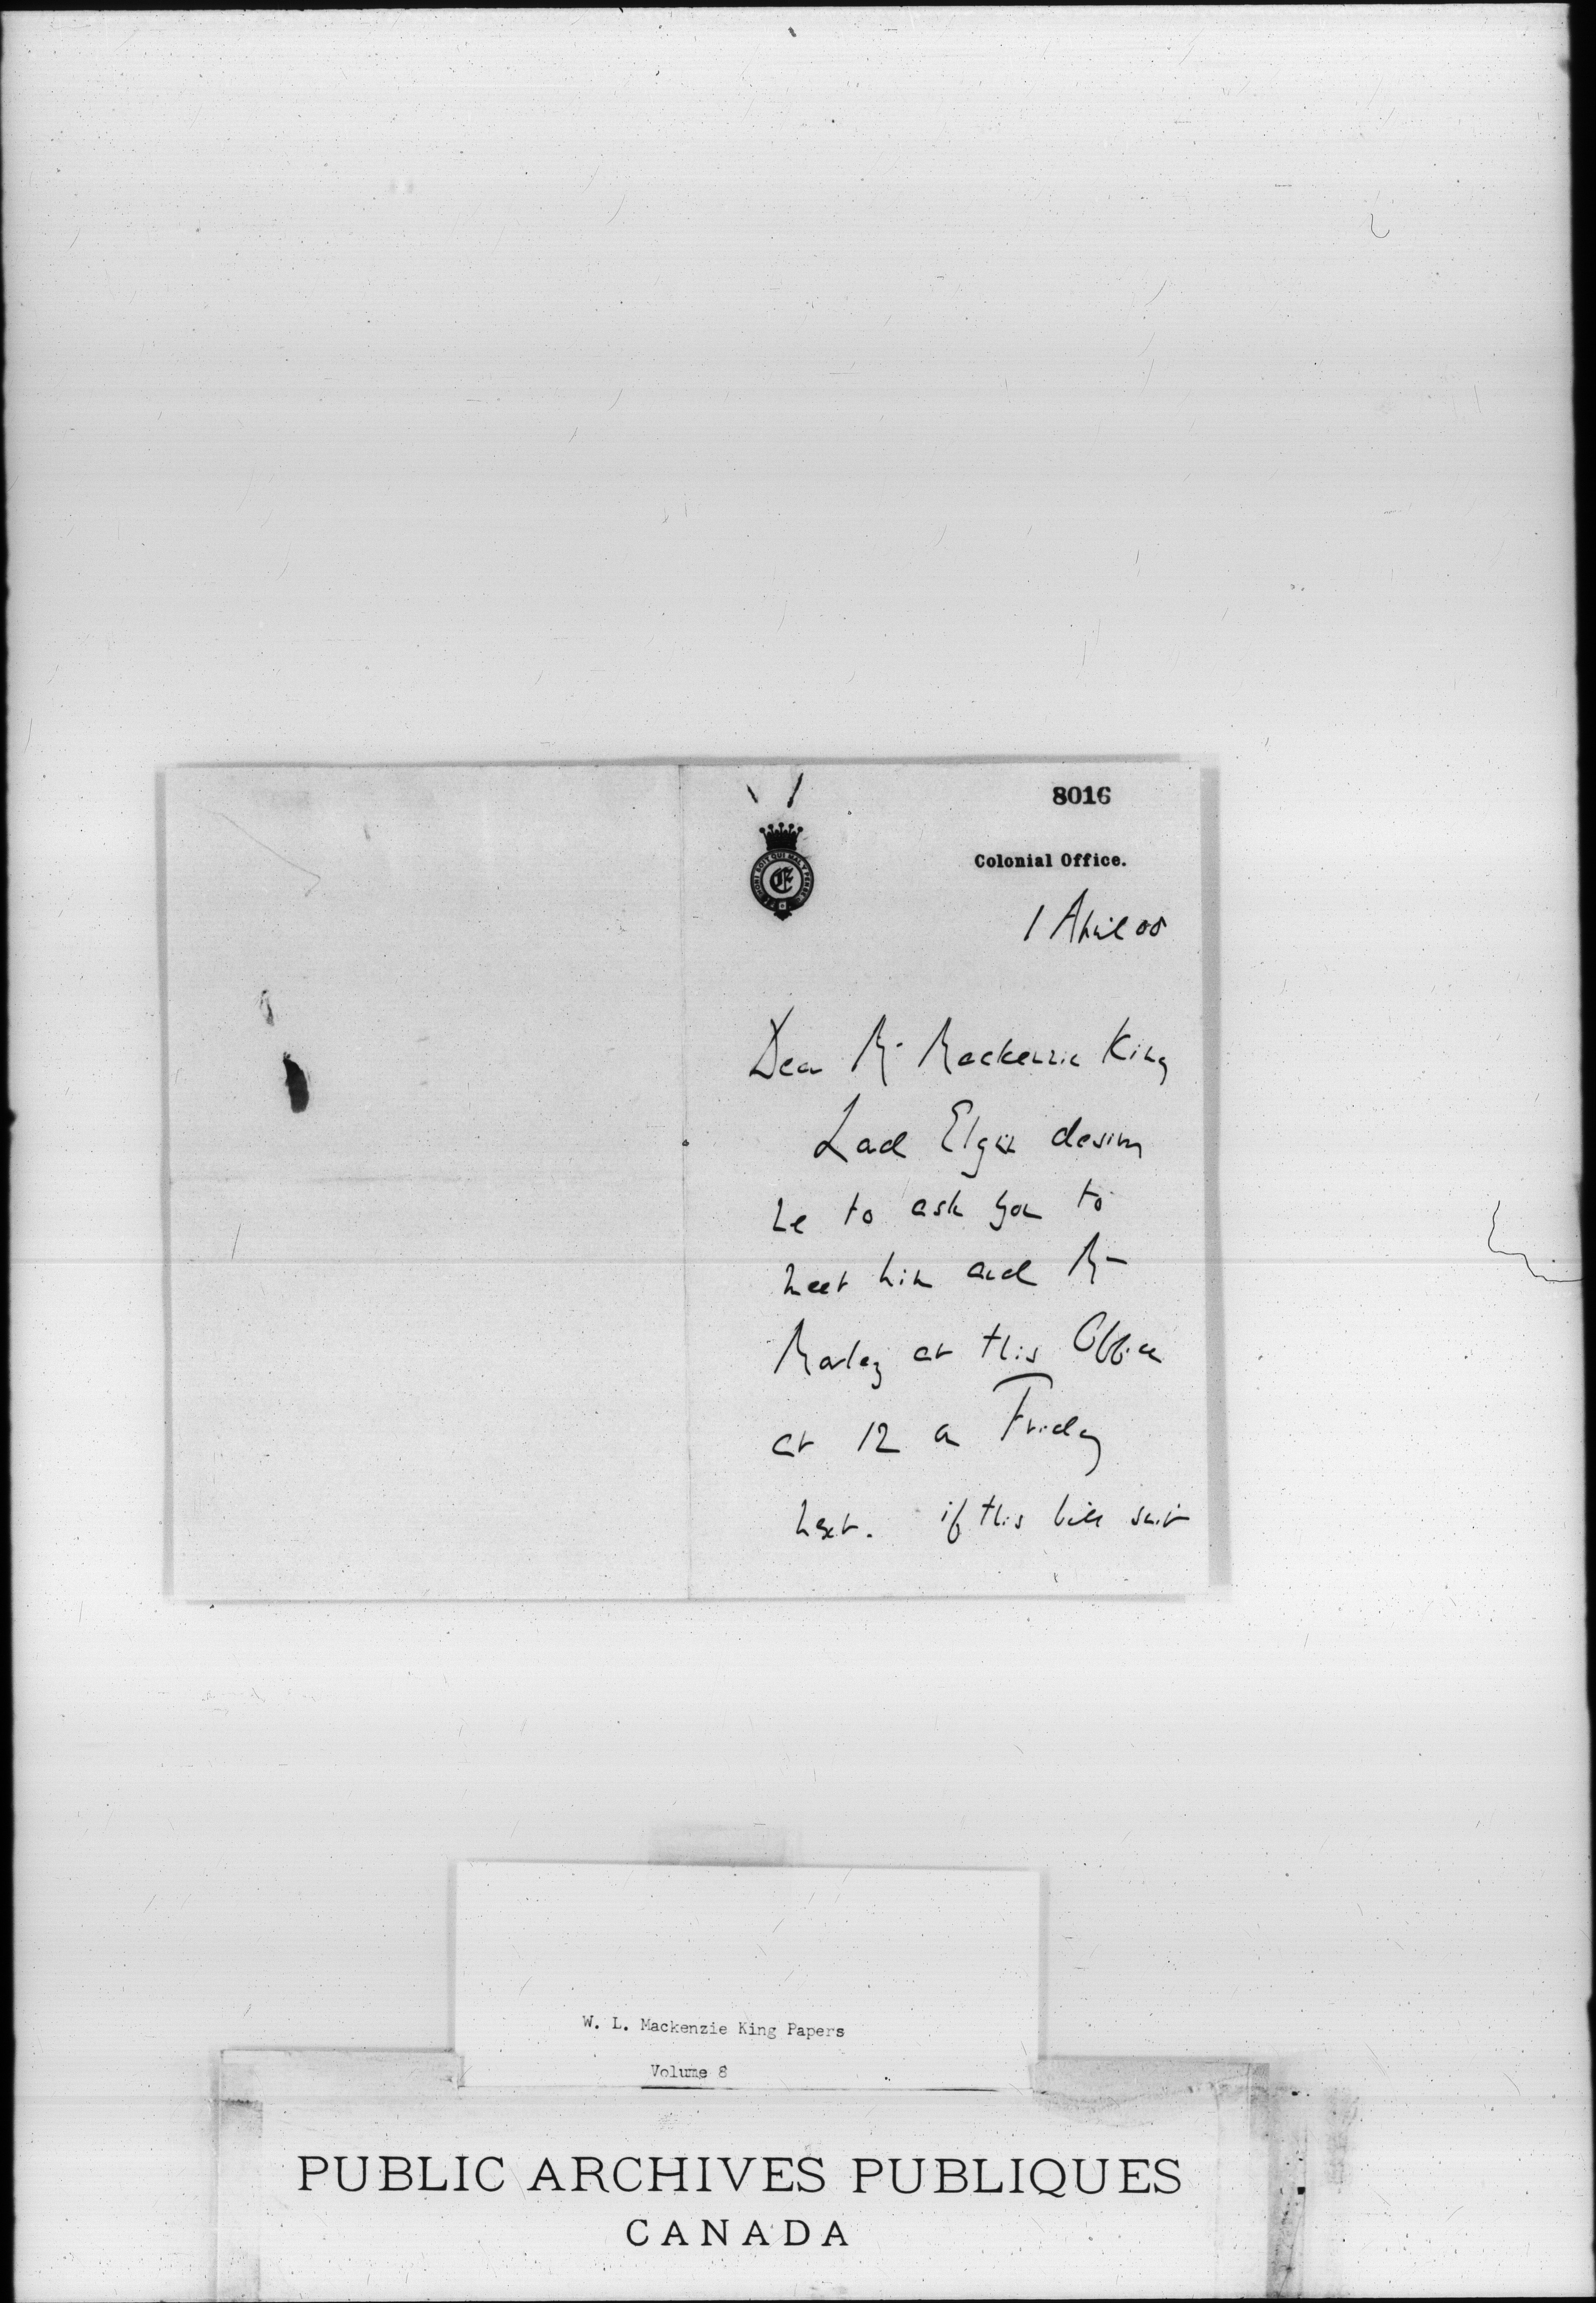 8016
HONI SOIT QUI MAL Y PENSE
Colonial Office.
1 April 08
Dear Mr Mackenzie King
Lord Elgin desires
me to ask you to
meet him and Mr
Morley at this Office
at 12 on Friday
next. if this will suit
W. L. Mackenzie King Papers
Volume 8
PUBLIC ARCHIVES PUBLIQUES
CANADA